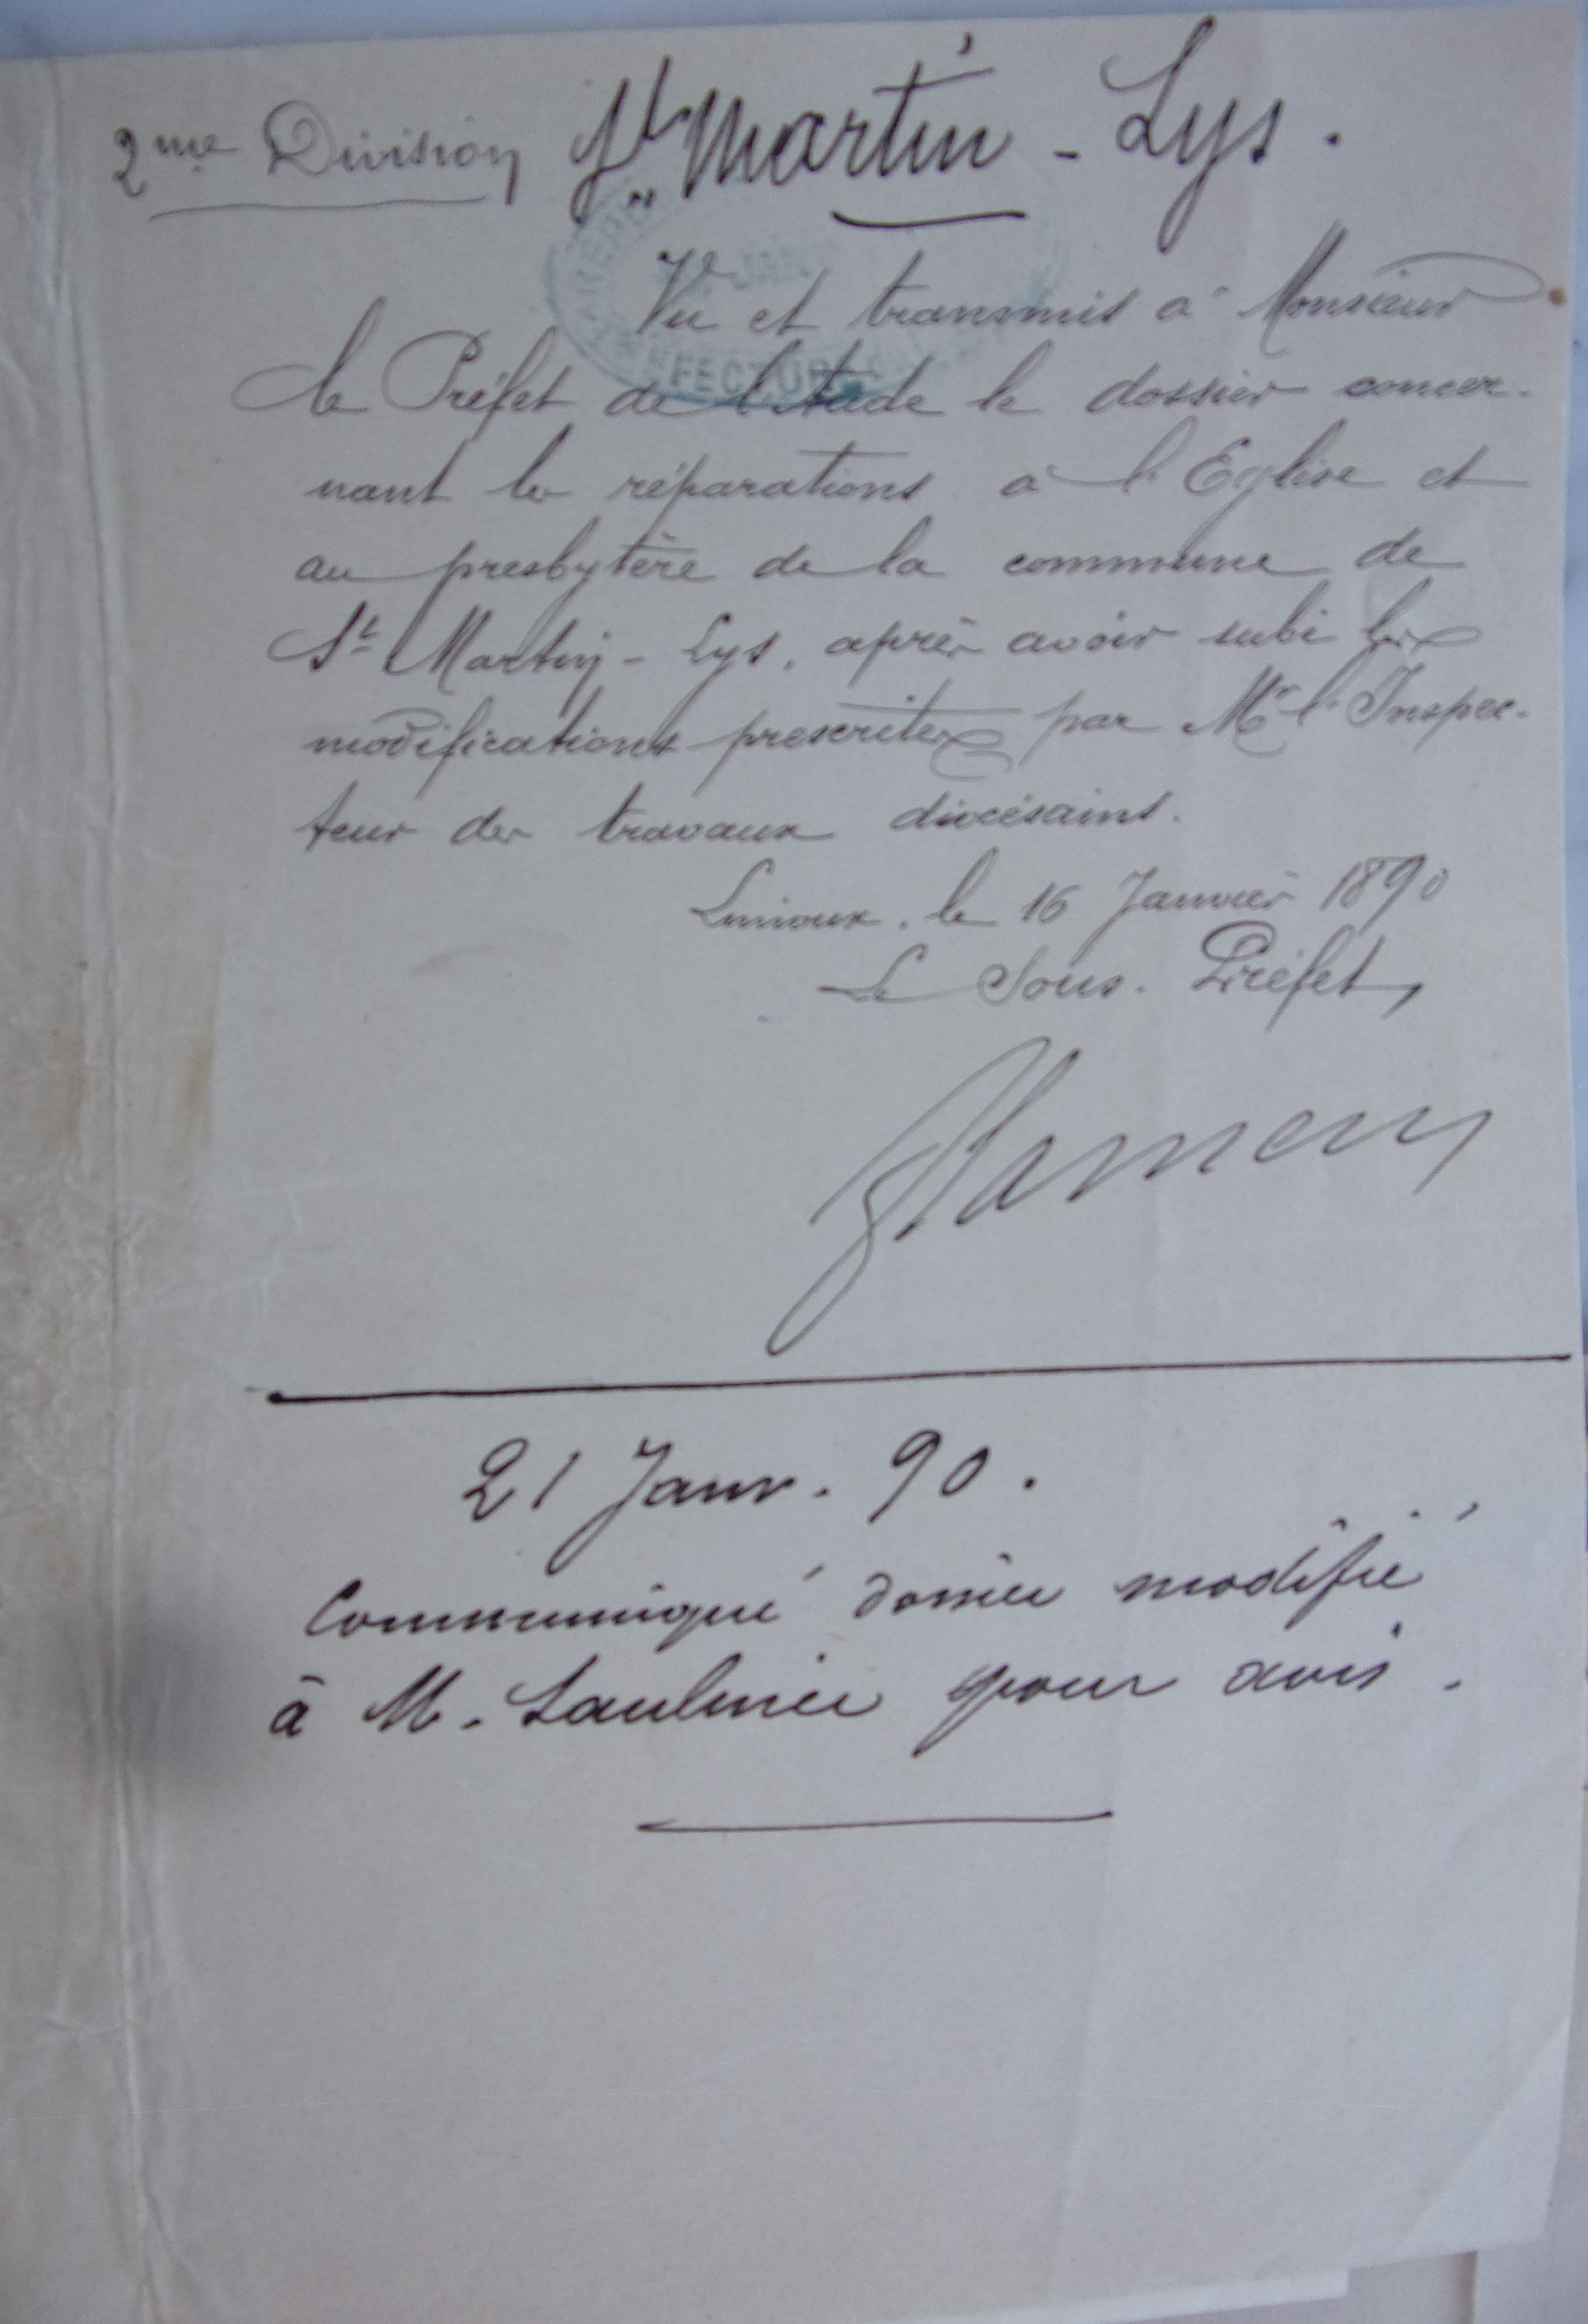 2me Division St Martin - Lys.
Vu et transmis à Monsieur
le Préfet de l'Aude le dossier concer-
nant les réparations à l'Eglise et
au presbytère de la commune de
St Martin - Lys, après avoir subi les
modifications prescrites par Mr l'Inspec-
teur des travaux diocésains.
Limoux, le 16 Janvier 1890
Le Sous-Préfet,
21 Janv. 90.
Communiqué dossier modifié
à M. Saulnier pour avis.